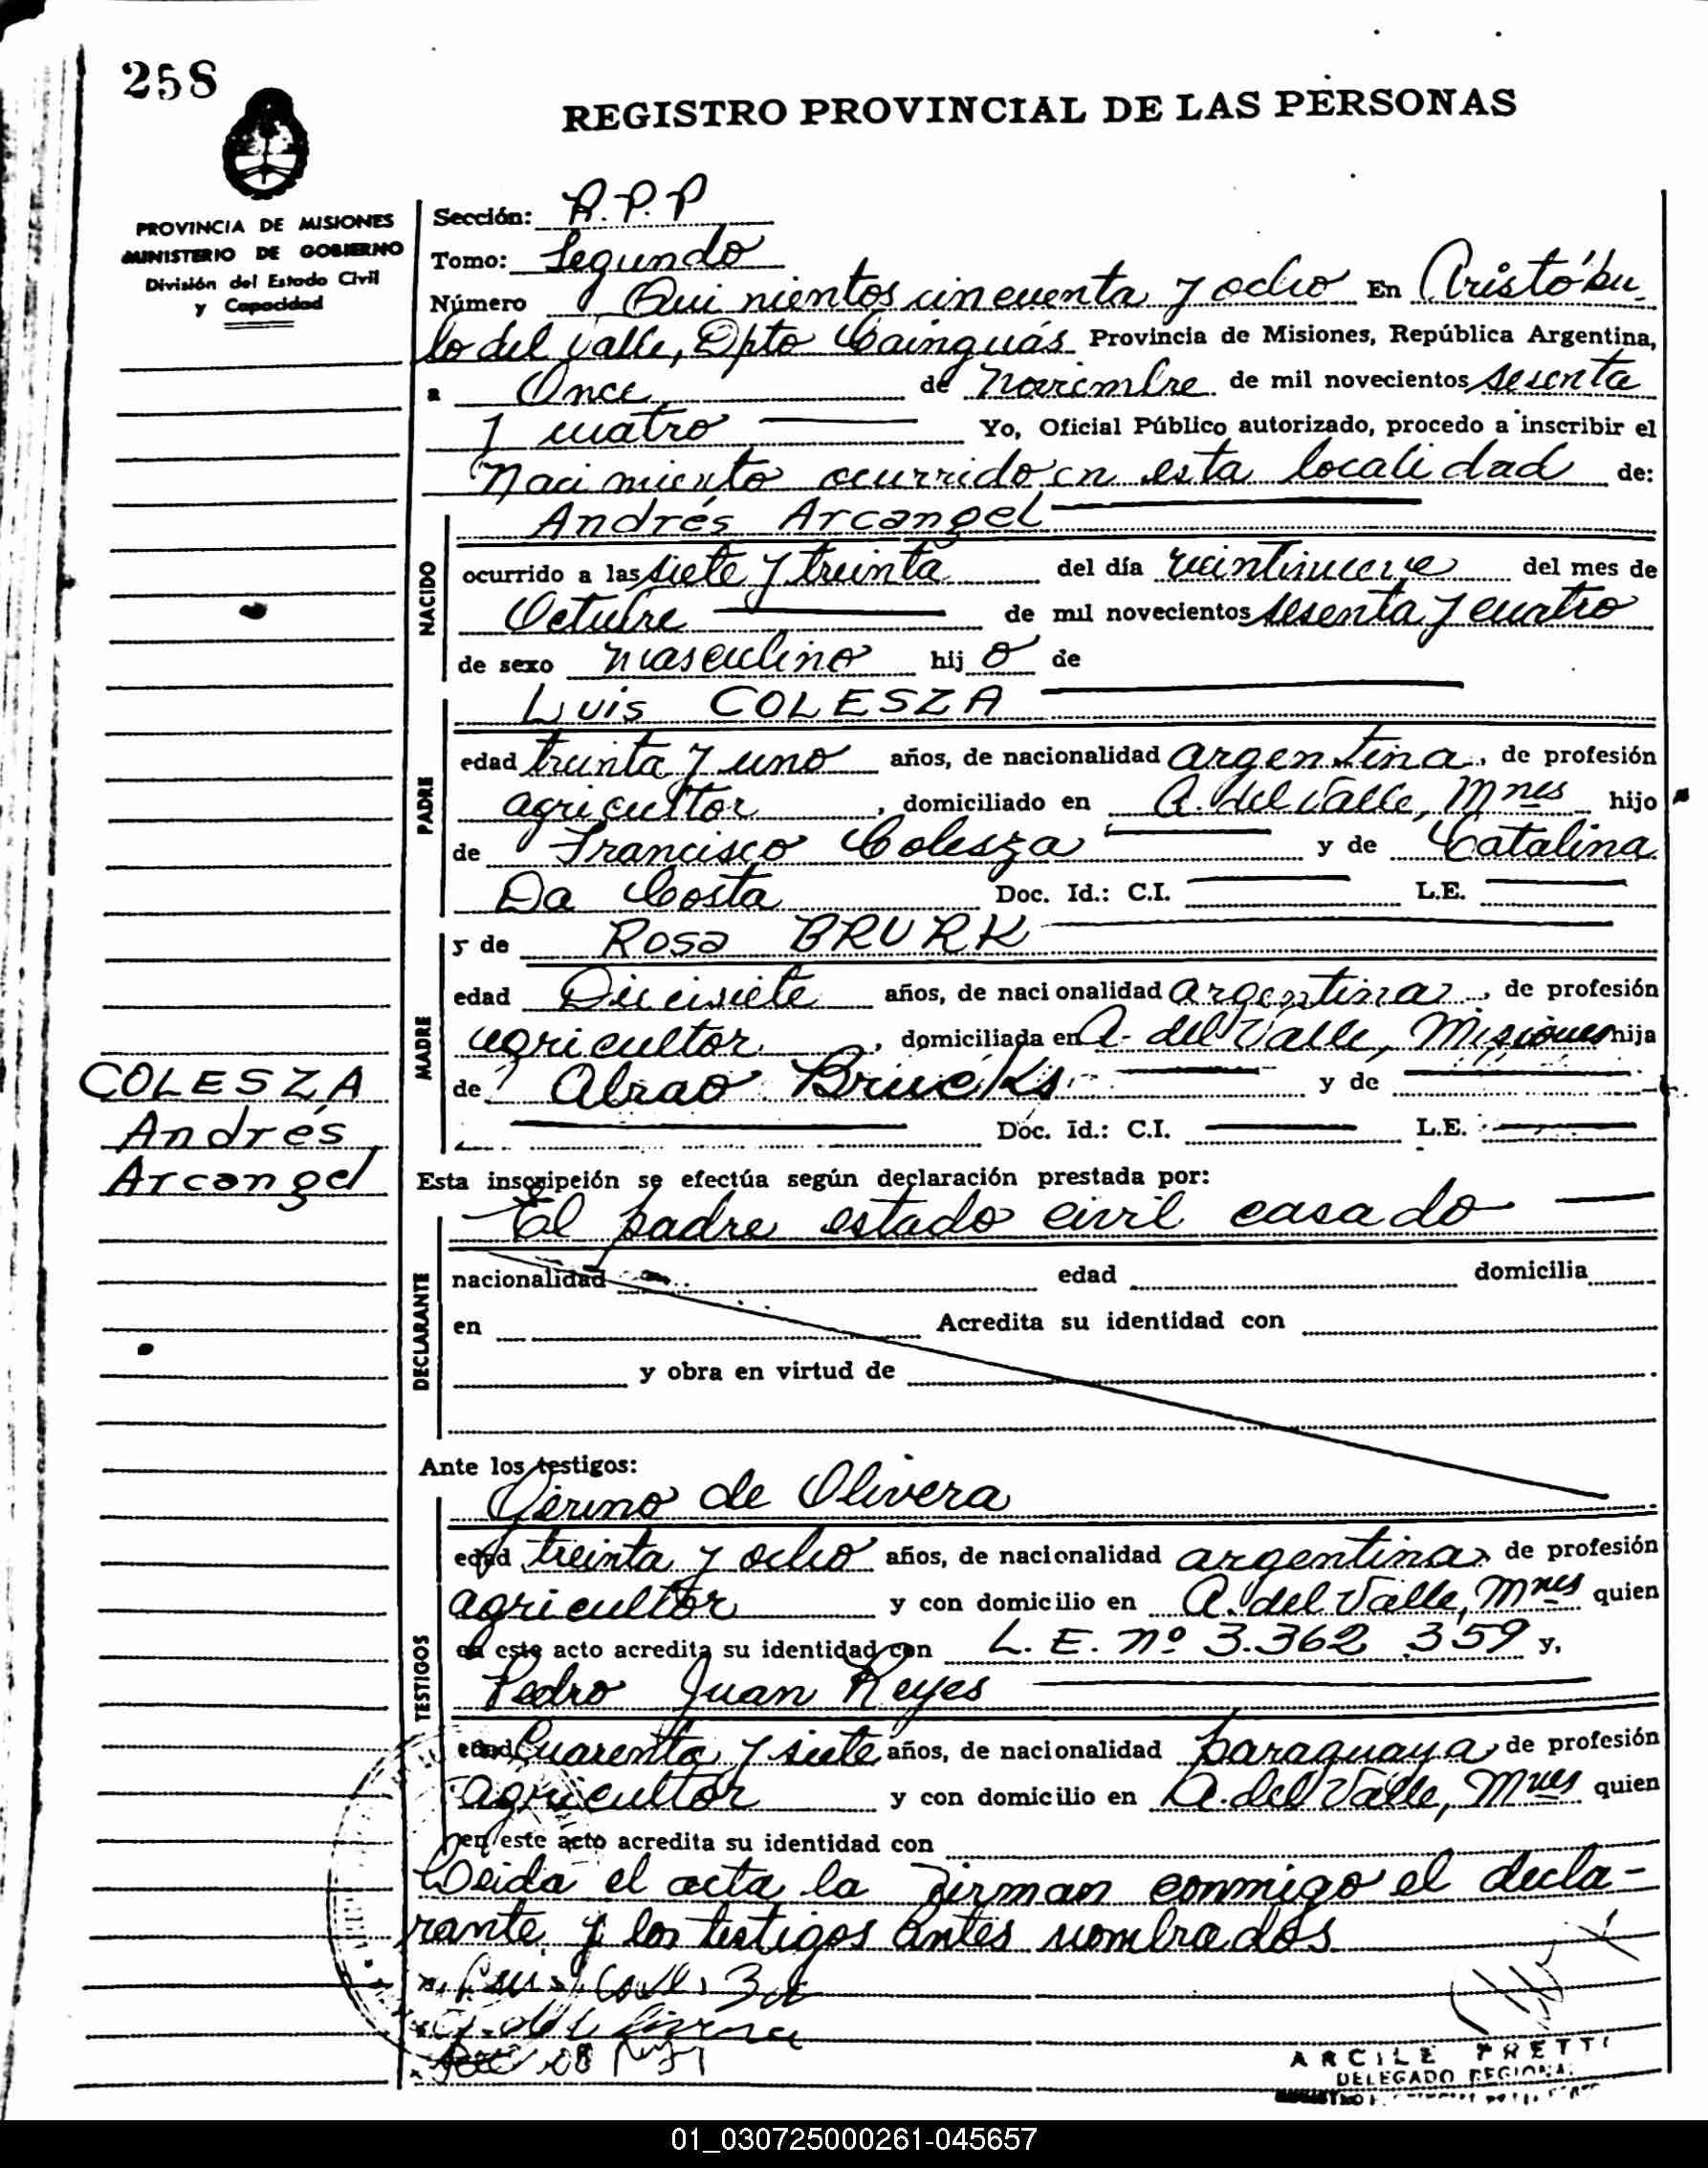 258
REGISTRO PROVINCIAL DE LAS PERSONAS
PROVINCIA DE MISIONES
MINISTERIO DE GOBIERNO
División del Estado Civil
y Capacidad
Sección: R.P.P
Tomo: Segundo
Número Quinientos cincuenta y ocho En Aristóbu
lo del Valle, Dpto Cainguás Provincia de Misiones, República Argentina,
a Once de Noviembre de mil novecientos sesenta
y cuatro Yo, Oficial Público autorizado, procedo a inscribir el
Nacimiento ocurrido en esta localidad de:
NACIDO
Andrés Arcangel
ocurrido a las siete y treinta del día veintinueve del mes de
Octubre de mil novecientos sesenta y cuatro
de sexo masculino hijo de
PADRE
Luis COLESZA
edad treinta y uno años, de nacionalidad argentina, de profesión
agricultor, domiciliado en A. del Valle, Mnes hijo
de Francisco Colesza y de Catalina
Da Costa Doc. Id.: C.I. L.E.
MADRE
y de Rosa BRURK
edad Diecisiete años, de nacionalidad argentina, de profesión
agricultor, domiciliada en A. del Valle, Misiones hija
de Abrao Brucks y de
Doc. Id.: C.I. L.E.
COLESZA
Andrés
Arcangel
Esta inscripción se efectúa según declaración prestada por:
DECLARANTE
El padre estado civil casado
nacionalidad edad domicilia
en Acredita su identidad con
y obra en virtud de
Ante los testigos:
TESTIGOS
de Olivera
edad treinta y ocho años, de nacionalidad argentina, de profesión
agricultor y con domicilio en A. del Valle, Mnes quien
en este acto acredita su identidad con L. E. nº 3.362 359 y,
Pedro Juan Reyes
edad Cuarenta y siete años, de nacionalidad paraguaya, de profesión
agricultor y con domicilio en A. del Valle, Mnes quien
en este acto acredita su identidad con
Leida el acta la firman conmigo el decla-
rante y los testigos antes nombrados
ARCILE PRETTI
DELEGADO REGIONAL
01_030725000261-045657